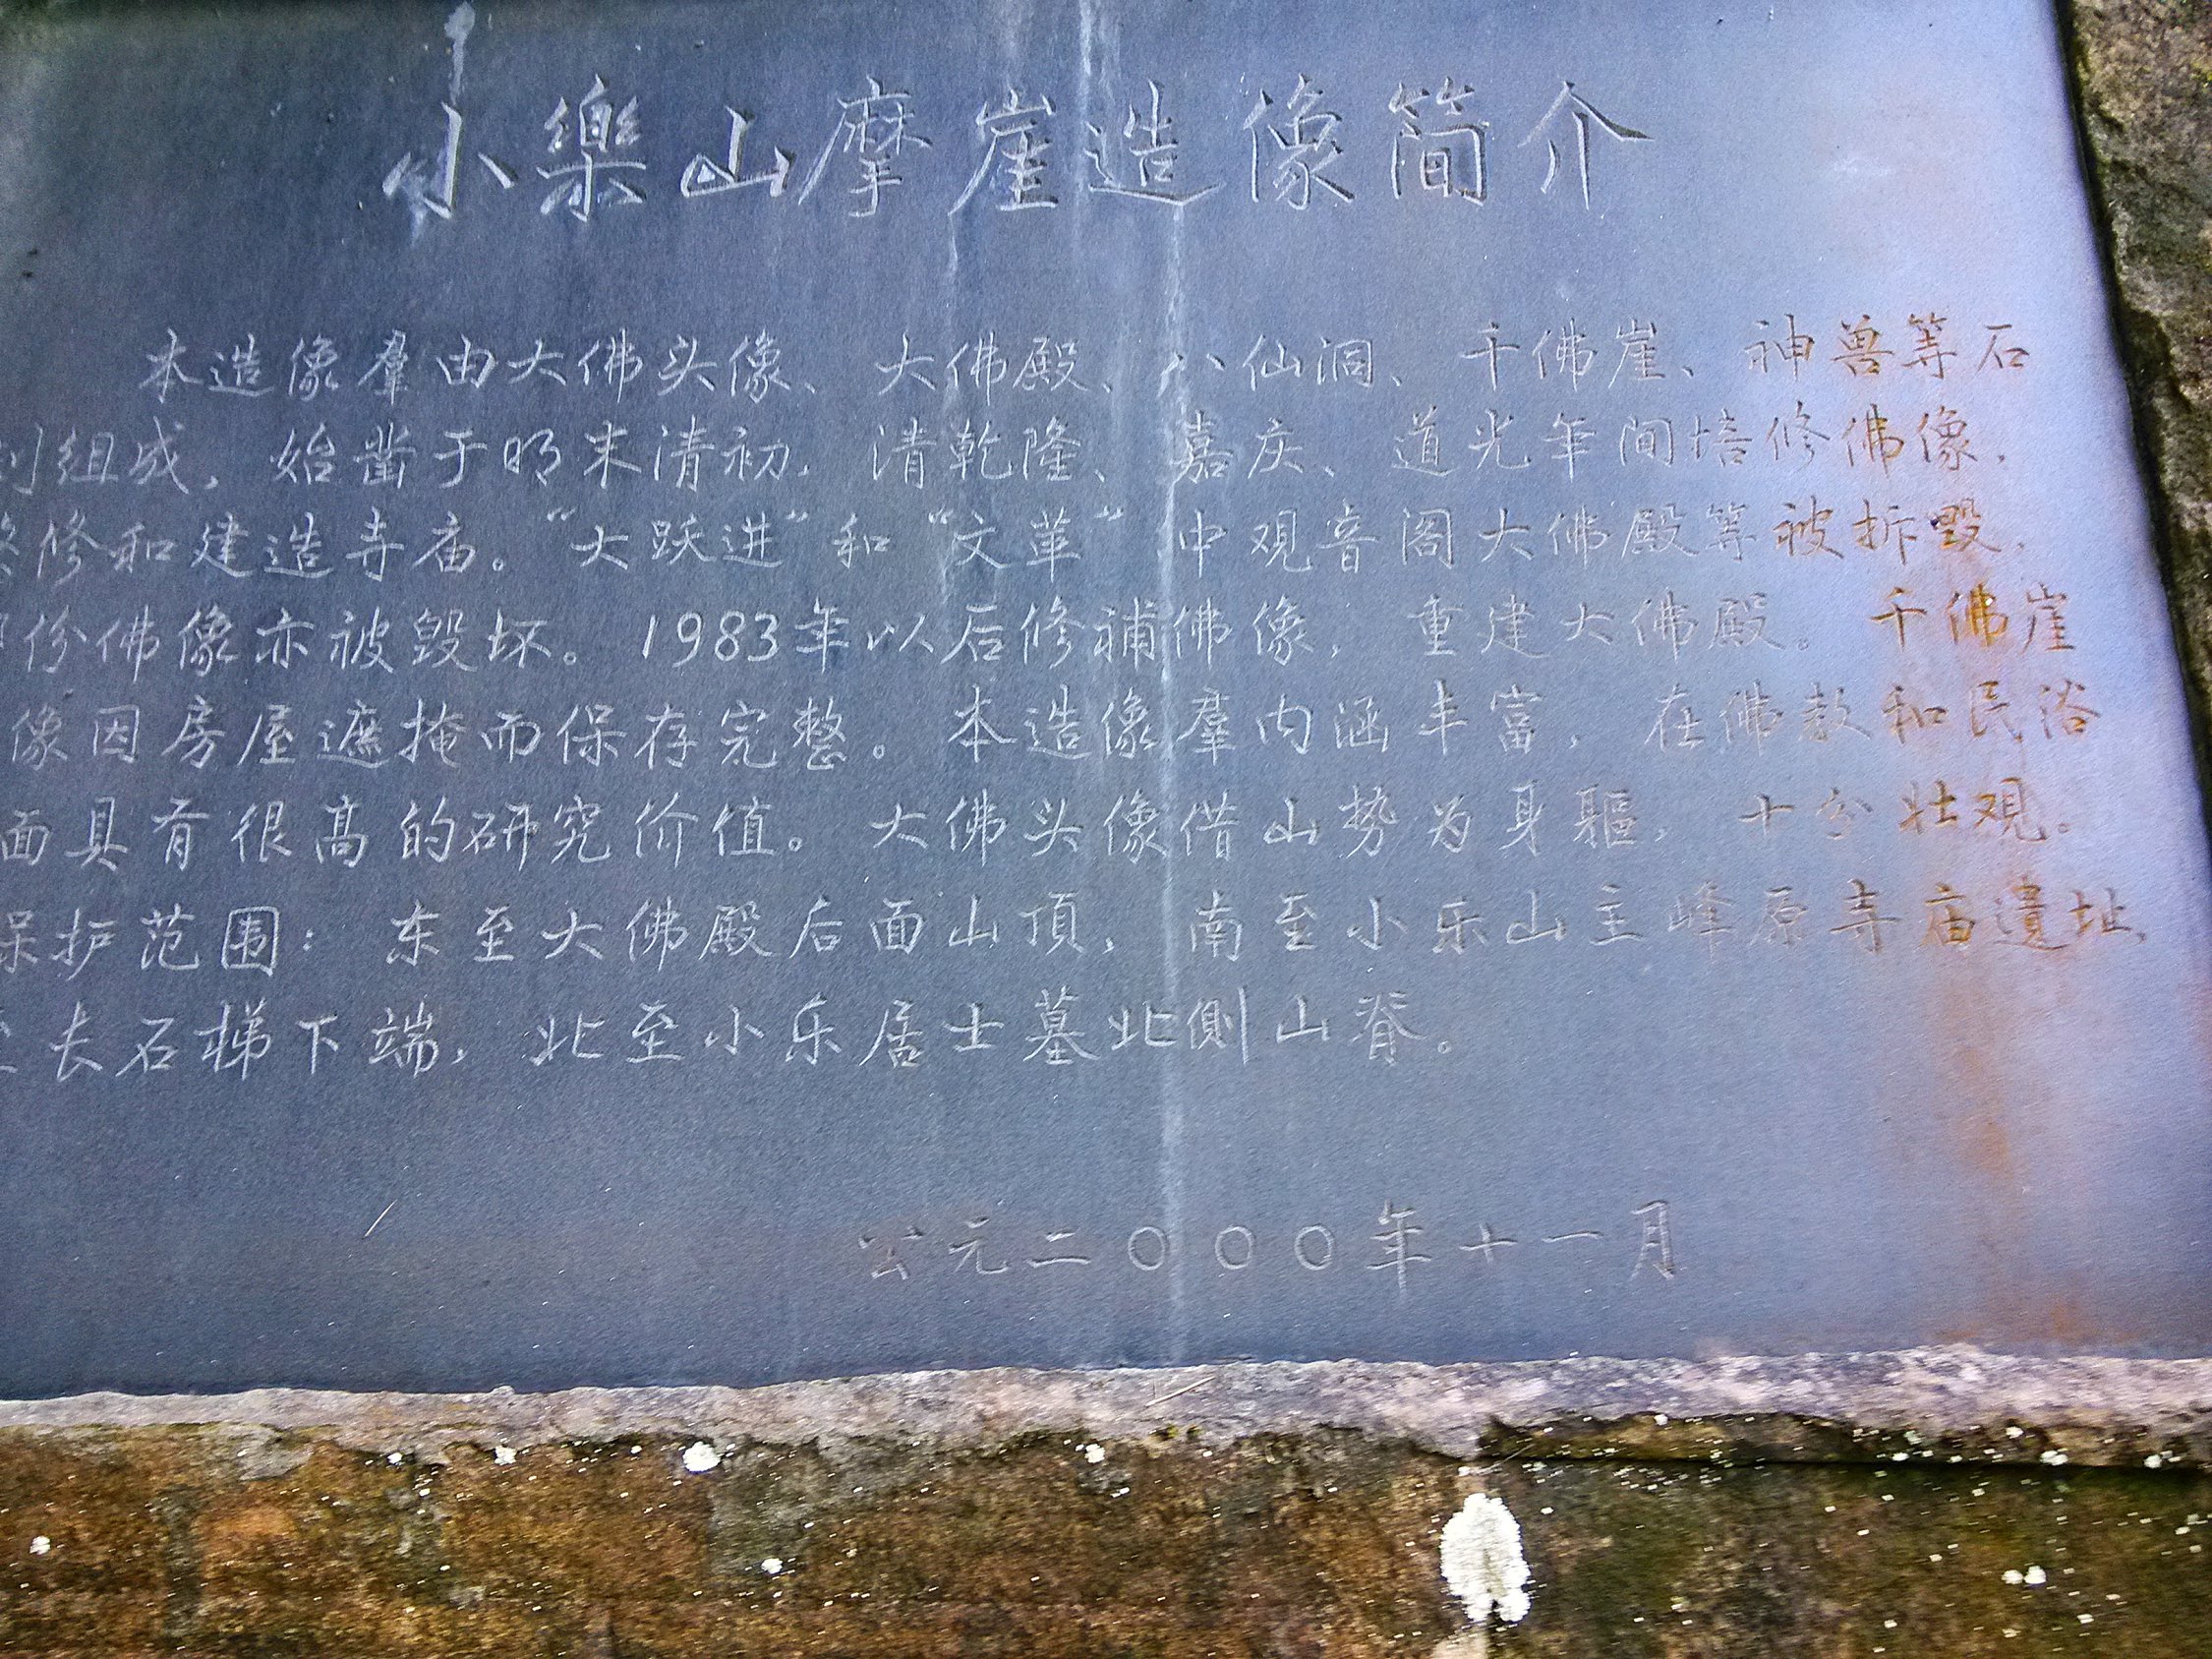 小樂山摩崖造像简介
本造像羣由大佛头像、大佛殿、八仙洞、千佛崖、神兽等石
刻组成，始凿于明末清初，清乾隆、嘉庆、道光年间培修佛像，
修和建造寺庙。“大跃进”和“文革”中观音阁大佛殿等被拆毁，
份佛像亦被毁坏。1983年以后修補佛像，重建大佛殿。千佛崖
像因房屋遮掩而保存完整。本造像羣内涵丰富，在佛教和民俗
面具有很高的研究价值。大佛头像借山势为身軀，十分壮观。
保护范围：东至大佛殿后面山頂，南至小乐山主峰原寺庙遺址，
至长石梯下端，北至小乐居士墓北側山脊。
公元二〇〇〇年十一月